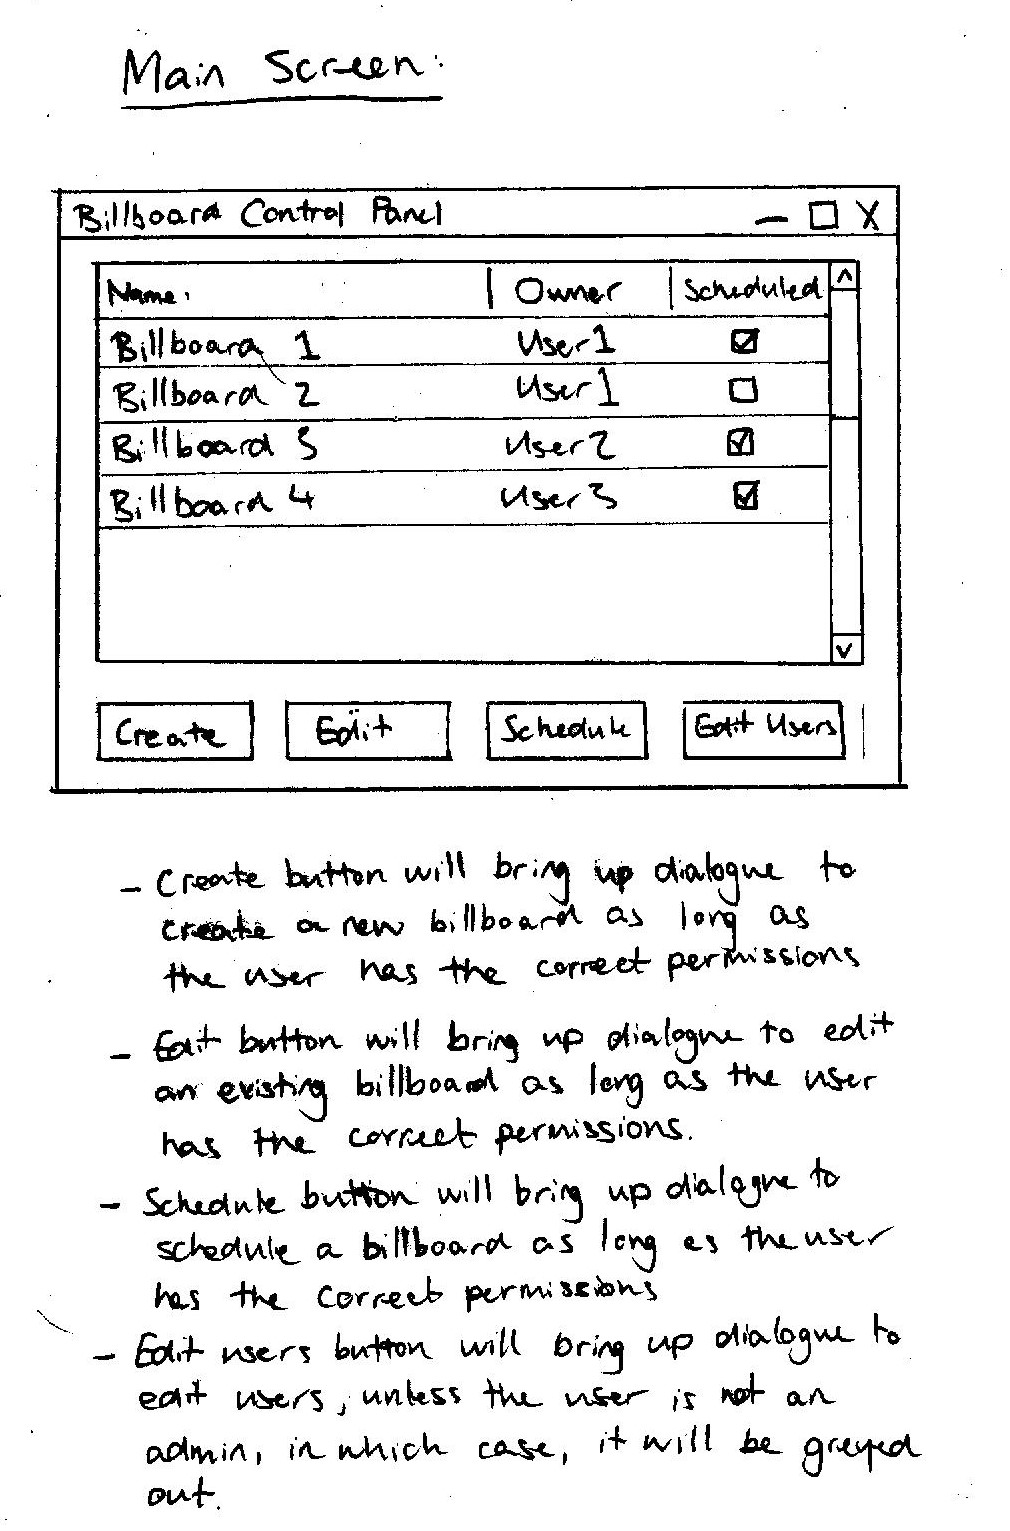 Main Screen:
Billboard Control Panel — □ X
Name: | Owner | Scheduled ^
Billboard 1 User1 ☑
Billboard 2 User1 ☐
Billboard 3 User2 ☑
Billboard 4 User3 ☑
v
Create Edit Schedule Edit Users
- Create button will bring up dialogue to
create a new billboard as long as
the user has the correct permissions
- Edit button will bring up dialogue to edit
an existing billboard as long as the user
has the correct permissions.
- Schedule button will bring up dialogue to
schedule a billboard as long as the user
has the correct permissions
- Edit users button will bring up dialogue to
edit users, unless the user is not an
admin, in which case, it will be greyed
out.